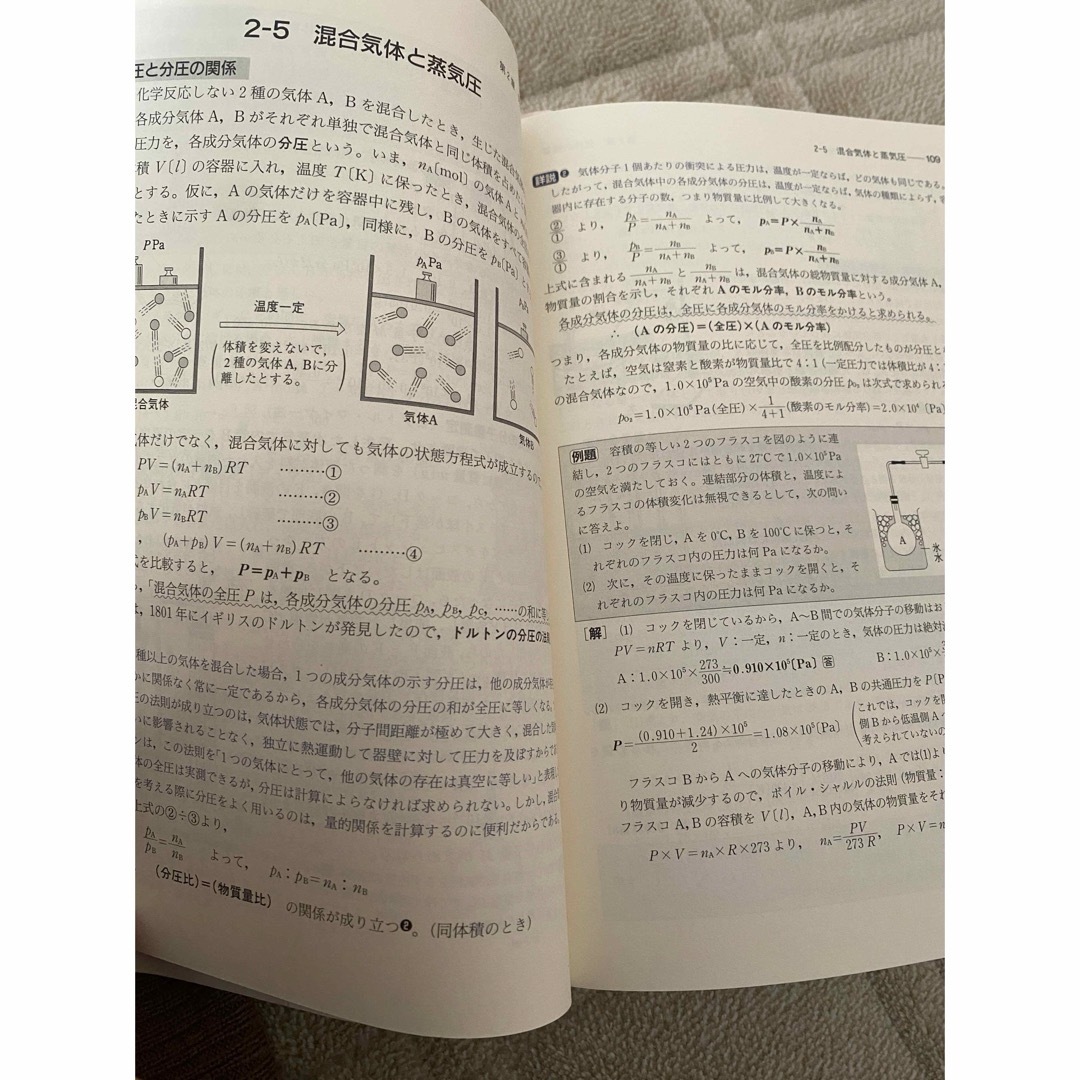 2-5 混合気体と蒸気圧
圧と分圧の関係
化学反応しない2種の気体A，Bを混合したとき，生じた混合
各成分気体A，Bがそれぞれ単独で混合気体と同じ体積を占め
圧力を，各成分気体の分圧という。いま，nA〔mol〕の気体Aと
積V〔l〕の容器に入れ，温度T〔K〕に保ったとき，混合気体の
とする。仮に，Aの気体だけを容器中に残し，Bの気体をすべて
たときに示すAの分圧をpA〔Pa〕，同様に，Bの分圧をpB〔Pa〕と
PPa
pAPa
温度一定
体積を変えないで，
2種の気体A, Bに分
離したとする。
混合気体
気体A
気体B
気体だけでなく，混合気体に対しても気体の状態方程式が成立するので
PV=(nA+nB)RT ………①
pAV=nART ………②
pBV=nBRT ………③
，(pA+pB)V=(nA+nB)RT ………④
式を比較すると， P=pA+pB となる。
，「混合気体の全圧Pは，各成分気体の分圧pA，pB，pC，……の和に等
は，1801年にイギリスのドルトンが発見したので，ドルトンの分圧の法則
種以上の気体を混合した場合，1つの成分気体の示す分圧は，他の成分気体が
かに関係なく常に一定であるから，各成分気体の分圧の和が全圧に等しくなる。
圧の法則が成り立つのは，気体状態では，分子間距離が極めて大きく，混合した
いに影響されることなく，独立に熱運動して器壁に対して圧力を及ぼすからで
ンは，この法則を「1つの気体にとって，他の気体の存在は真空に等しい」と表現
体の全圧は実測できるが，分圧は計算によらなければ求められない。しかし，混合
を考える際に分圧をよく用いるのは，量的関係を計算するのに便利だからである。
上式の②÷③より，
pA/pB=nA/nB よって， pA：pB=nA：nB
(分圧比)=(物質量比) の関係が成り立つ❷。(同体積のとき)
2-5 混合気体と蒸気圧——109
詳説❷ 気体分子1個あたりの衝突による圧力は，温度が一定ならば，どの気体も同じである。
したがって，混合気体中の各成分気体の分圧は，温度が一定ならば，気体の種類によらず，容
器内に存在する分子の数，つまり物質量に比例して大きくなる。
②/① より， pA/P=nA/(nA+nB) よって， pA=P×nA/(nA+nB)
③/① より， pB/P=nB/(nA+nB) よって， pB=P×nB/(nA+nB)
上式に含まれる nA/(nA+nB) と nB/(nA+nB) は，混合気体の総物質量に対する成分気体A，
物質量の割合を示し，それぞれAのモル分率，Bのモル分率という。
各成分気体の分圧は，全圧に各成分気体のモル分率をかけると求められる。
∴ (Aの分圧)=(全圧)×(Aのモル分率)
つまり，各成分気体の物質量の比に応じて，全圧を比例配分したものが分圧と
たとえば，空気は窒素と酸素が物質量比で4：1(一定圧力では体積比が4：
の混合気体なので，1.0×10⁵Paの空気中の酸素の分圧pO₂は次式で求められる
pO₂=1.0×10⁵Pa(全圧)×1/(4+1)(酸素のモル分率)=2.0×10⁴〔Pa〕
例題 容積の等しい2つのフラスコを図のように連
結し，2つのフラスコにはともに27℃で1.0×10⁵Pa
の空気を満たしておく。連結部分の体積と，温度によ
るフラスコの体積変化は無視できるとして，次の問い
に答えよ。
(1) コックを閉じ，Aを0℃，Bを100℃に保つと，そ
れぞれのフラスコ内の圧力は何Paになるか。
(2) 次に，その温度に保ったままコックを開くと，そ
れぞれのフラスコ内の圧力は何Paになるか。
A
氷
水
［解］ (1) コックを閉じているから，A〜B間での気体分子の移動はお
PV=nRTより，V：一定，n：一定のとき，気体の圧力は絶対
A：1.0×10⁵×273/300≒0.910×10⁵〔Pa〕答 B：1.0×10⁵×
(2) コックを開き，熱平衡に達したときのA，Bの共通圧力をP〔P
P=(0.910+1.24)×10⁵/2=1.08×10⁵〔Pa〕
これでは，コックを
側Bから低温側Aへ
考えられていないの
フラスコBからAへの気体分子の移動により，Aでは(1)よ
り物質量が減少するので，ボイル・シャルルの法則(物質量：
フラスコA, Bの容積をV〔l〕，A, B内の気体の物質量をそれ
P×V=nA×R×273より， nA=PV/273R， P×V=n